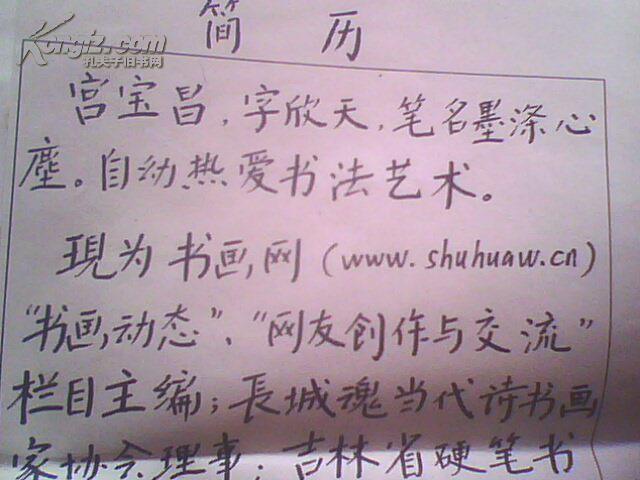 简 历
Kongfz.com
孔夫子旧书网
宫宝昌,字欣天,笔名墨涤心
塵。自幼热爱书法艺术。
現为书画网(www.shuhuaw.cn)
“书画动态”、“网友创作与交流”
栏目主编;長城魂当代诗书画
家协会理事;吉林省硬笔书